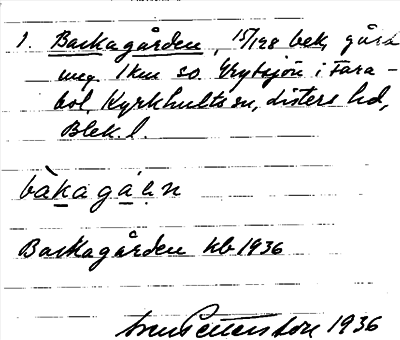 1. Backagården, 15/128 bek, gård
invg 1 km so. Grytsjön i Fara-
bol, Kyrkhults sn, Listers hd,
Blek. l.
bàkagá̤ṇ
Backagården kb 1936
Sven Pettersson 1936